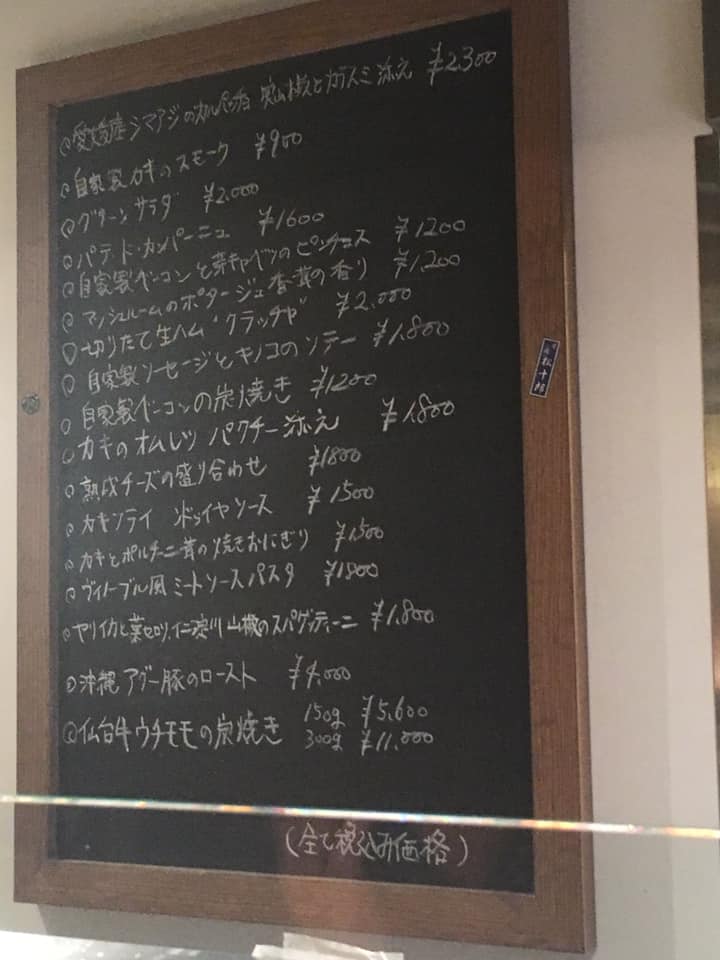 愛媛産シマアジのカルパッチョ 実山椒とカラスミ添え ¥2,300
自家製カキのスモーク ¥900
グリーンサラダ ¥2,000
パテ・ド・カンパーニュ ¥1600
自家製ベーコンと芽キャベツのピンチョス ¥1200
マッシュルームのポタージュ 香茸の香り ¥1,200
切りたて生ハム"クラッチャ" ¥2,000
自家製ソーセージとキノコのソテー ¥1,800
自家製ベーコンの炭焼き ¥1200
カキのオムレツ パクチー添え ¥1,800
熟成チーズの盛り合わせ ¥1800
カキフライ ソース ¥1500
カキとポルチーニ茸の焼きおにぎり ¥1,500
ヴィトーブル風ミートソースパスタ ¥1800
ヤリイカと葉セロリ、仁淀川山椒のスパゲッティーニ ¥1,800
沖縄アグー豚のロースト ¥4,000
仙台牛ウチモモの炭焼き 150g ¥5,600
300g ¥11,000
(全て税込み価格)
松十郎